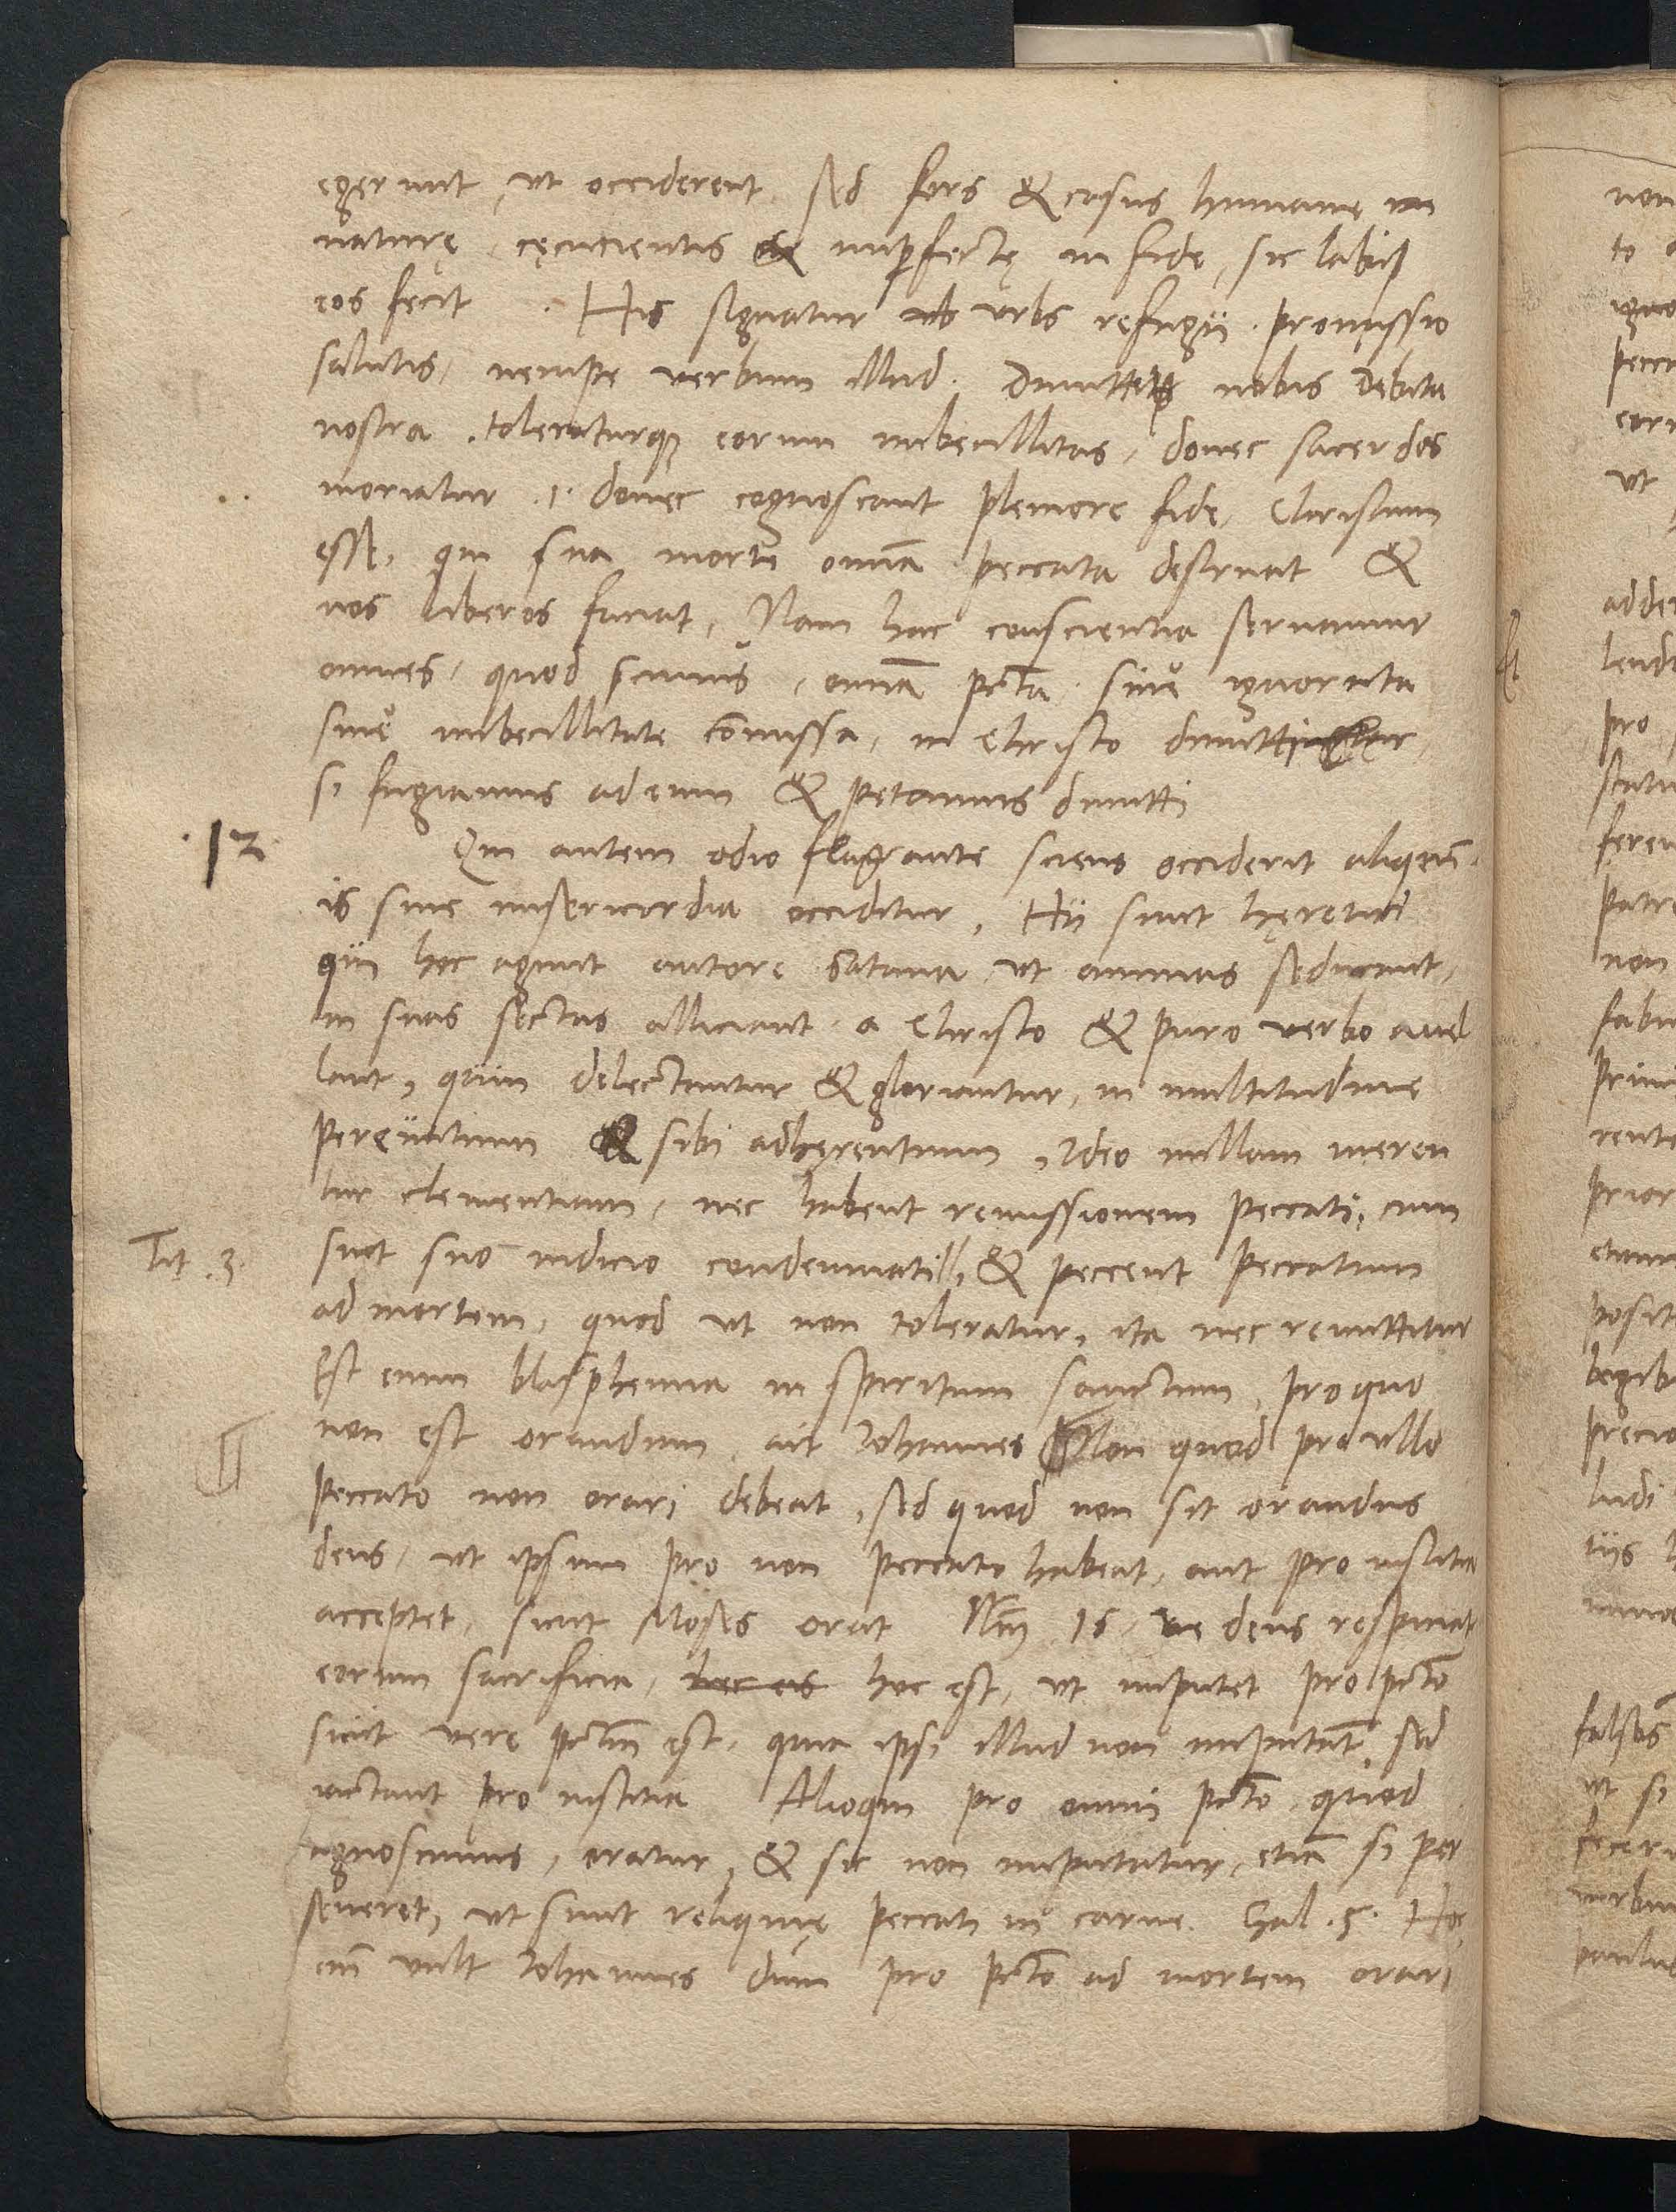 egerunt, ut occiderent. sed fors & casus humanę
naturę, cęcucientis & imperfectę in fide, sic labi
eos fecit. His signatur urbs refugii. promissio
salutis, nempe verbum illud. Dimitte nobis debita
nostra. toleraturque eorum imbecillitas, donec sacerdos
moriatur .i. donec cognoscant pleniore fide, Christum
esse, qui sua morte omnia peccata destruat &
nos liberos faciat, Nam hac conscientia seruamur
omnes, quod scimus, omnia pcta siue ignorata
siue imbecillitate comissa, in Christo dimitti
si fugiamus ad eum & petamus dimitti
12 Qui autem odio flagrante sciens occiderit aliquem.
is sine misericordia occiditur, Hii sunt hęretici
qui hoc agunt autore Satana ut animas seducant,
in suas sectas alliciant a Christo & puro verbo auel
lant, quin delectantur & gloriantur, in multitudine
pereuntium & sibi adhęrentium, Ideo nullam meren
tur clementiam, nec habent remissionem peccati, cum
Tit. 3. sint suo iudicio condemnati, & peccent peccatum
ad mortem, quod ut non toleratur, ita nec remittitur
Est enim blasphemia in spiritum sanctum, pro quo
non est orandum ait Iohannes Non quod pro ullo
peccato non orari debeat, sed quod non sit orandus
deus, ut ipsum pro non peccato habeat, aut pro iustitia
acceptet, sicut Moses orat Num 16, ne deus respiciat
eorum sacrificia, hoc est, ut imputet pro pcto
sicut vere pctm est, quia ipsi illud non imputant, sed
iactant pro iustitia Alioqui pro omni pcto quod
agnoscimus, oratur, & sic non imputatur, etiam si per
seueret, ut sunt reliquię peccati in carne. Gal. 5. Hoc
eni vult Iohannes dum pro pcto ad mortem orari